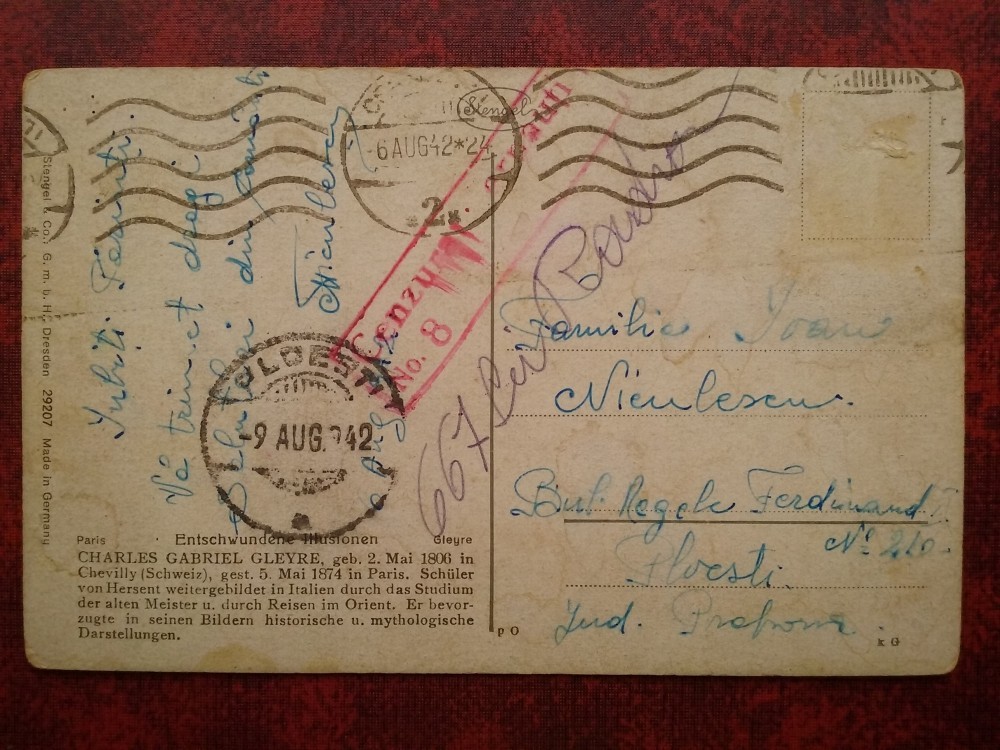 Iubiți Părinți.
Vă trimet dragi
Salutări din
Niculescu
Stengel & Co., G. m. b. H., Dresden 29207 Made in Germany
Stengel
-6 AUG 42*24
2
Cenzurat
No. 8
PLOESTI
-9 AUG. 942
667
Familia Ioan
Niculescu.
Bul. Regele Ferdinand I
No 210.
Ploesti
Jud. Prahova.
Paris Entschwundene Illusionen Gleyre
CHARLES GABRIEL GLEYRE, geb. 2. Mai 1806 in
Chevilly (Schweiz), gest. 5. Mai 1874 in Paris. Schüler
von Hersent weitergebildet in Italien durch das Studium
der alten Meister u. durch Reisen im Orient. Er bevor-
zugte in seinen Bildern historische u. mythologische
Darstellungen.
p O
k G